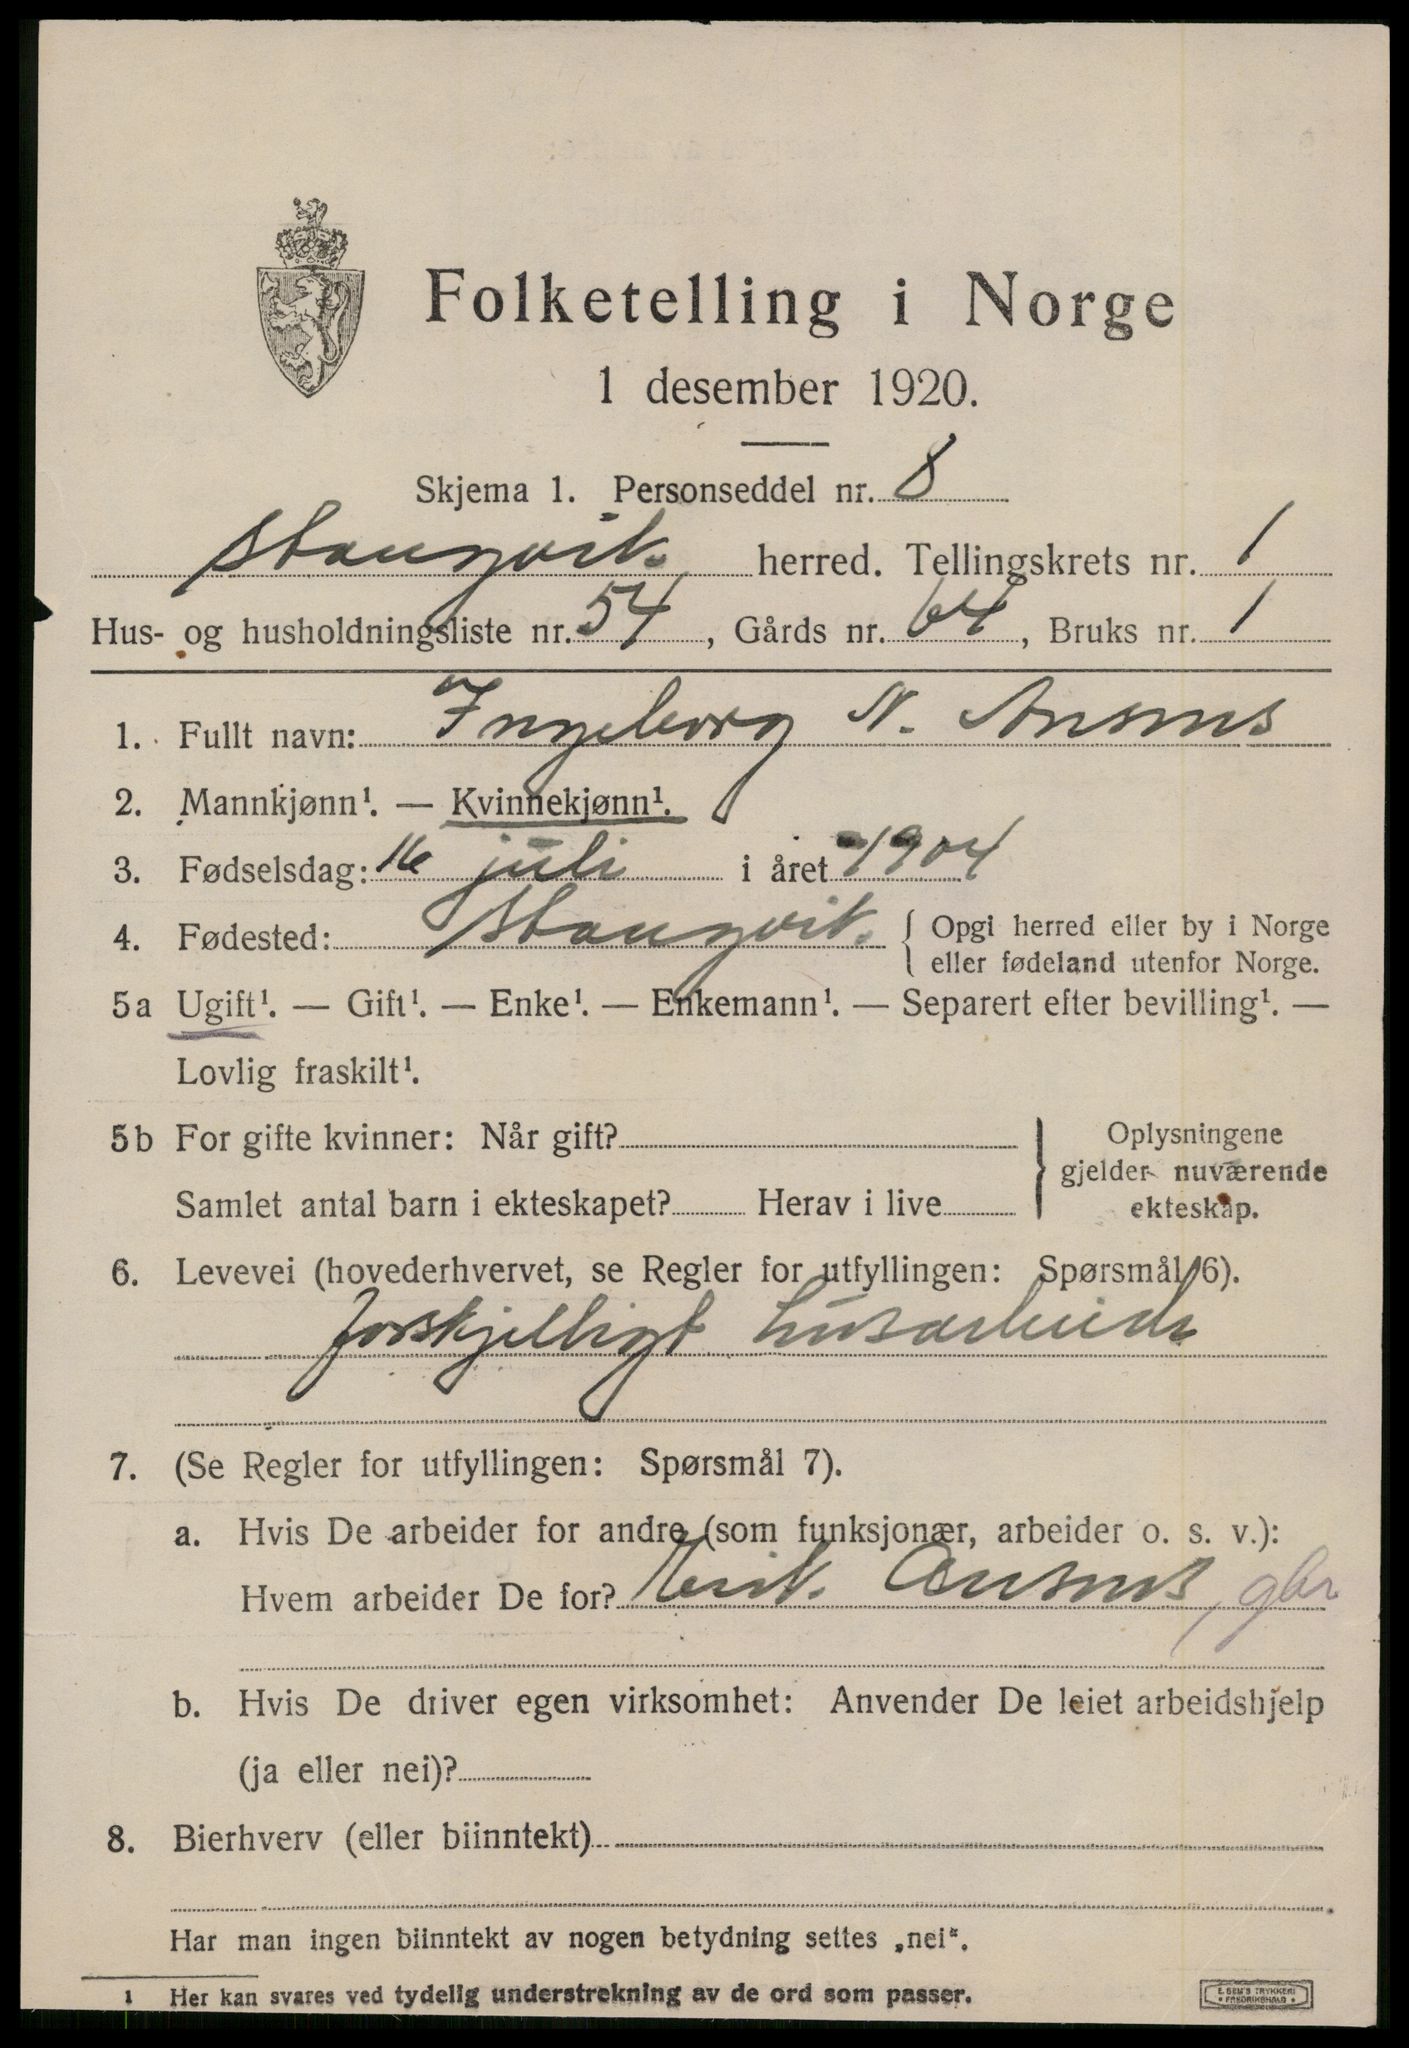 Folketelling i Norge
1 desember 1920.
Skjema 1. Personseddel nr. 8
Stangvik. herred. Tellingskrets nr. 1
Hus- og husholdningsliste nr. 54, Gårds nr. 64, Bruks nr. 1
1. Fullt navn: Ingeborg N. Ansnes
2. Mannkjønn¹. — Kvinnekjønn¹.
3. Fødselsdag: 16 juli i året 1904
4. Fødested: Stangvik. { Opgi herred eller by i Norge
eller fødeland utenfor Norge.
5a Ugift¹. — Gift¹. — Enke¹. — Enkemann¹. — Separert efter bevilling¹. —
Lovlig fraskilt¹.
5b For gifte kvinner: Når gift?
Samlet antal barn i ekteskapet? Herav i live
} Oplysningene
gjelder nuværende
ekteskap.
6. Levevei (hovederhvervet, se Regler for utfyllingen: Spørsmål 6).
forskjelligt husarbeide
7. (Se Regler for utfyllingen: Spørsmål 7).
a. Hvis De arbeider for andre (som funksjonær, arbeider o. s. v.):
Hvem arbeider De for? Erik. Ansnes, gbr
b. Hvis De driver egen virksomhet: Anvender De leiet arbeidshjelp
(ja eller nei)?
8. Bierhverv (eller biinntekt)
Har man ingen biinntekt av nogen betydning settes „nei“.
1 Her kan svares ved tydelig understrekning av de ord som passer.
E. SEM'S TRYKKERI
* FREDRIKSHALD *